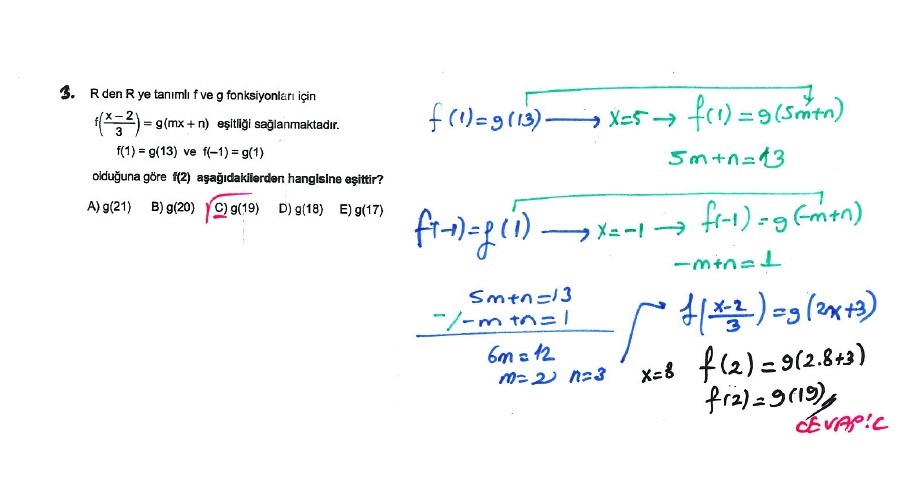 3. R den R ye tanımlı f ve g fonksiyonları için
f((x-2)/3) = g(mx + n) eşitliği sağlanmaktadır.
f(1) = g(13) ve f(-1) = g(1)
olduğuna göre f(2) aşağıdakilerden hangisine eşittir?
A) g(21) B) g(20) C) g(19) D) g(18) E) g(17)
f(1)=g(13) → x=5 → f(1)=g(5m+n)
5m+n=13
f(-1)=g(1) → x=-1 → f(-1)=g(-m+n)
-m+n=1
5m+n=13
-/-m+n=1
6m=12
m=2 n=3
f((x-2)/3)=g(2x+3)
x=8 f(2)=g(2.8+3)
f(2)=g(19)
CEVAP:C